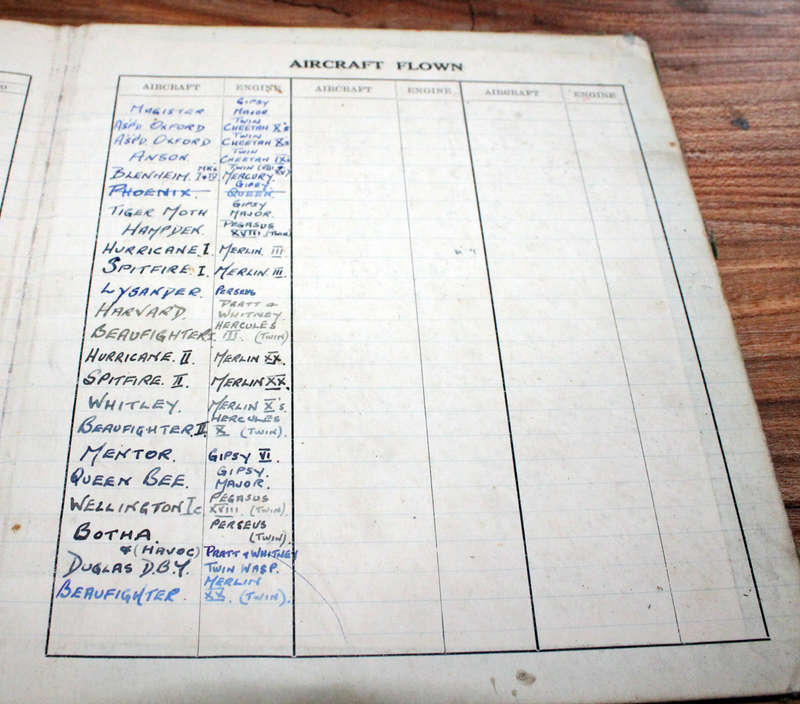 AIRCRAFT FLOWN
AIRCRAFT ENGINE AIRCRAFT ENGINE AIRCRAFT ENGINE
MAGISTER GIPSY MAJOR
ASPD OXFORD TWIN CHEETAH X's
ASPD OXFORD TWIN CHEETAH Xs
ANSON TWIN CHEETAH IXs
BLENHEIM. MKs I & IV TWIN MERCURY.
PHOENIX. GIPSY QUEEN
TIGER MOTH GIPSY MAJOR.
HAMPDEN. PEGASUS XVIII (TWIN)
HURRICANE I. MERLIN III
SPITFIRE I. MERLIN III
LYSANDER. PERSEUS
HARVARD. PRATT & WHITNEY.
BEAUFIGHTER I. HERCULES III. (TWIN)
HURRICANE. II. MERLIN XX.
SPITFIRE. II MERLIN XX.
WHITLEY. MERLIN X's.
BEAUFIGHTER. II HERCULES X (TWIN).
MENTOR. GIPSY VI.
QUEEN BEE. GIPSY MAJOR.
WELLINGTON Ic PEGASUS XVIII. (TWIN)
BOTHA. PERSEUS (TWIN).
& (HAVOC) PRATT & WHITNEY
DUGLAS D.B.7. TWIN WASP.
BEAUFIGHTER. MERLIN XX. (TWIN).